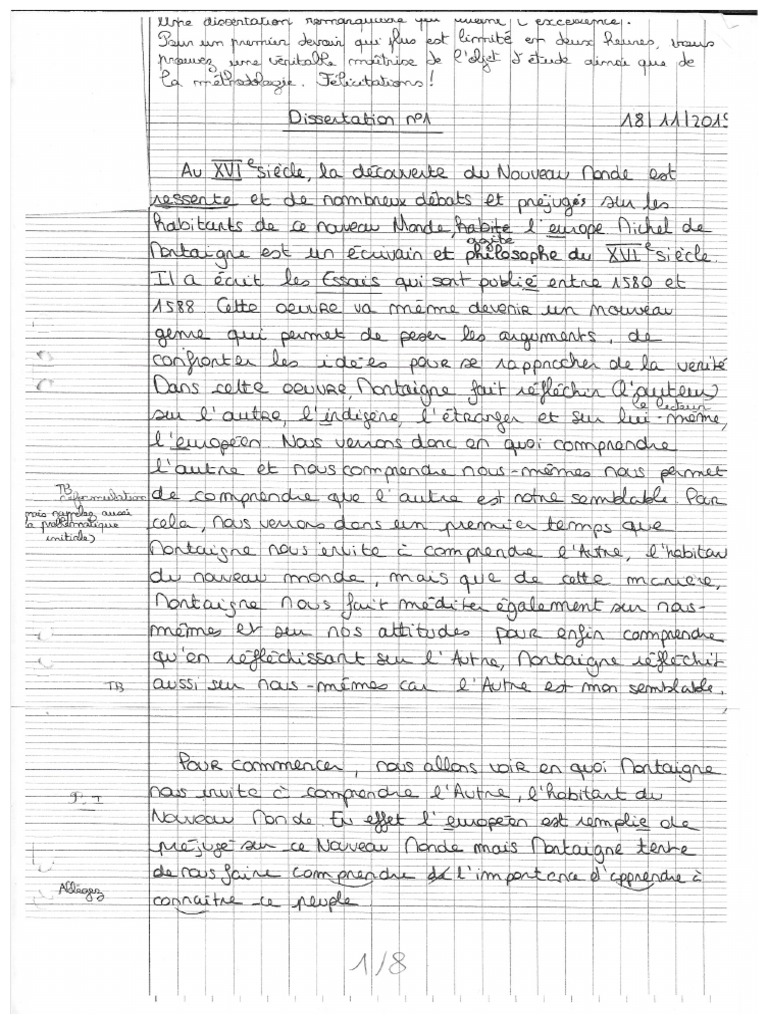 Une dissertation remarquable qui mérite l'excellence.
Pour un premier devoir qui plus est limité en deux heures, vous
prouvez une véritable maîtrise de l'objet d'étude ainsi que de
la méthodologie. Félicitations !
Dissertation n°1 18/11/2019
Au XVIe siècle, la découverte du Nouveau Monde est
ressente et de nombreux débats et préjugés sur les
habitants de ce nouveau Monde, habite l'europe Michel de
agite
Montaigne est un écrivain et philosophe du XVIe siècle.
Il a écrit les Essais qui sont publié entre 1580 et
1588. Cette oeuvre va même devenir un nouveau
genre qui permet de peser les arguments, de
confronter les idées pour se rapprocher de la verité
Dans cette oeuvre, Montaigne fait réfléchir (l'auteur)
le lecteur
sur l'autre, l'indigène, l'étranger et sur lui-même,
l'européen. Nous verrons donc en quoi comprendre
l'autre et nous comprendre nous-mêmes nous permet
TB
reformulation
de comprendre que l'autre est notre semblable Par
(mais rappelez aussi
la problématique
initiale)
cela, nous verrons dans un premier temps que
Montaigne nous invite à comprendre l'Autre, l'habitan
du nouveau monde, mais que de cette manière,
Montaigne nous fait méditer également sur nous-
mêmes et sur nos attitudes pour enfin comprendre
qu'en réfléchissant sur l'Autre, Montaigne réfléchit
TB
aussi sur nous-mêmes car l'Autre est mon semblable.
Pour commencer, nous allons voir en quoi Montaigne
P. I
nous invite à comprendre l'Autre, l'habitant du
Nouveau Monde. En effet l'européen est remplie de
préjugé sur ce Nouveau Monde mais Montaigne tente
de nous faire comprendre de l'importance d'apprendre à
Allégez
connaître ce peuple
1/8